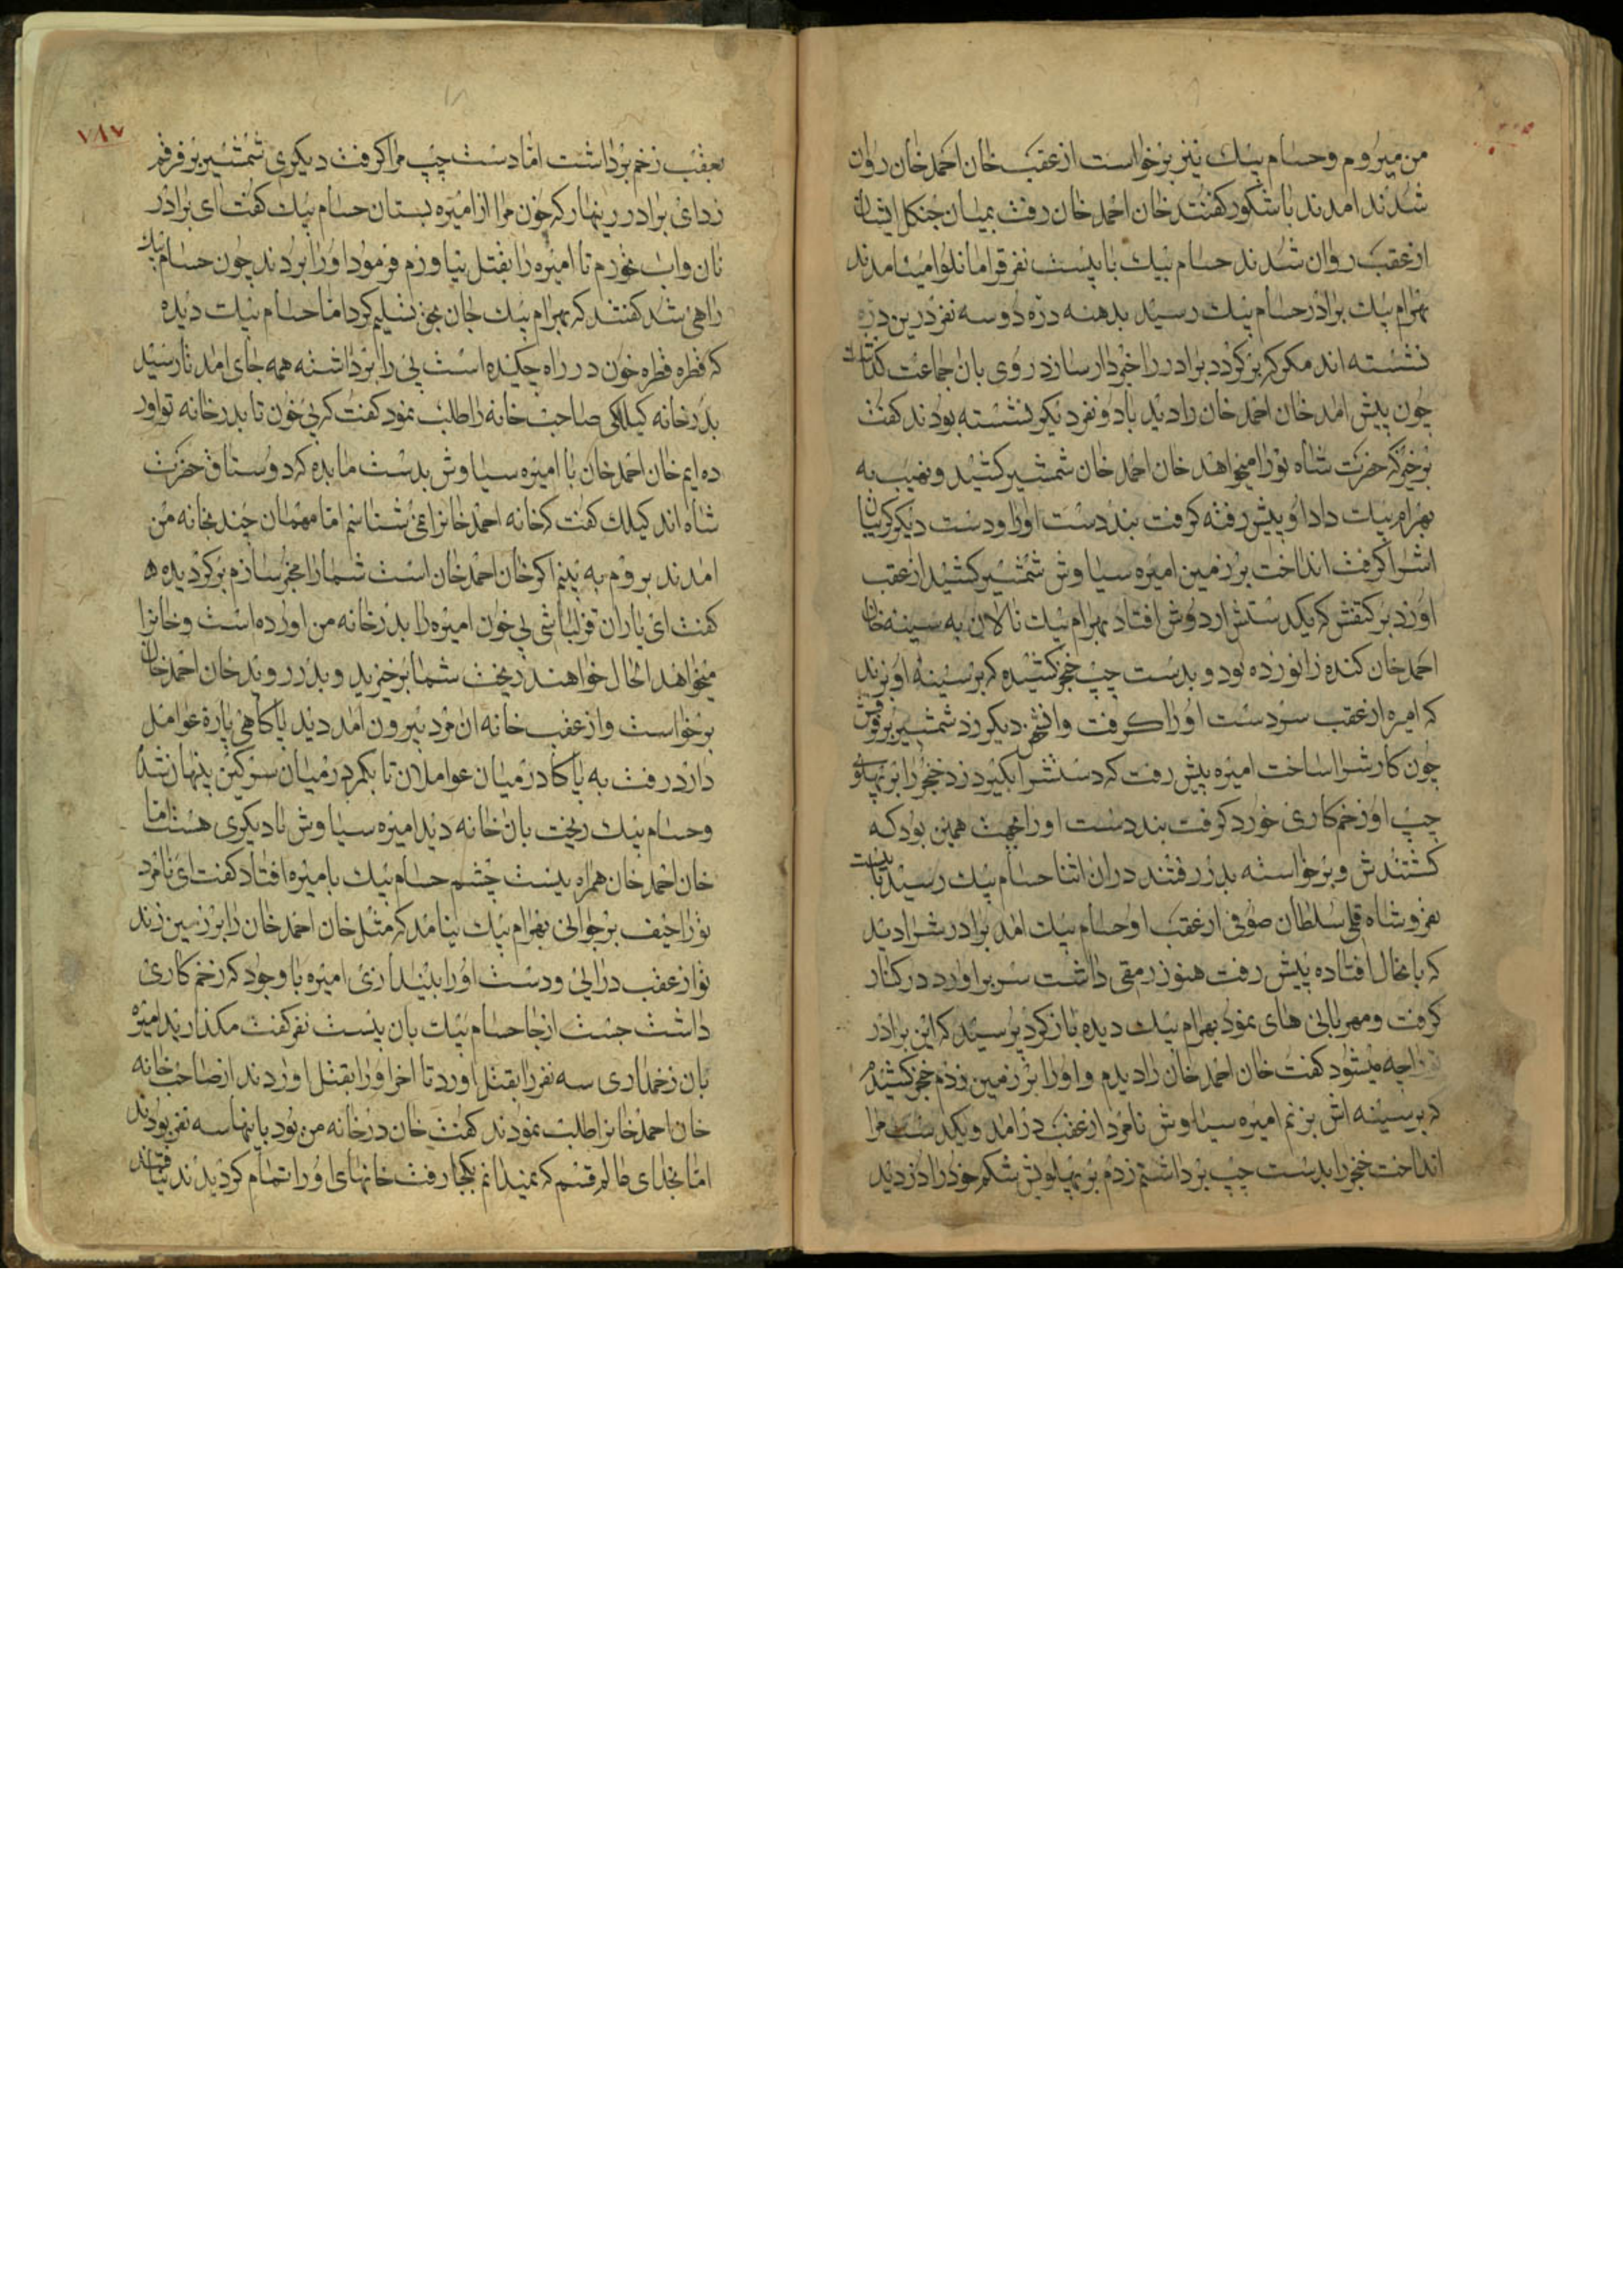 من میروم و حسام بیک نیز برخواست از عقب خان احمد خان روان
شدند امدند باشکور کفتند خان احمد خان رفت بمیان جنکل ایشان
از عقب روان شدند حسام بیک با بیست نفر قرامانلو میامدند
بهرام بیک برادر حسام بیک رسید بدهنه دره دو سه نفر درین دره
نشسته اند مکر که برکردد برادر را خبردار سازد روی بان جماعت
چون پیش امد خان احمد خان را دید با دو نفر دیکر نشسته بودند کفت
برخیز که حضرت شاه ترا میخواهد خان احمد خان شمشیر کشید و نهیب به
بهرام بیک داد او پیش رفته کرفت بند دست او را و دست دیکر کریبان
اشرا کرفت انداخت بر زمین امیره سیاوش شمشیر کشید از عقب
اورد بر کتفش که یکدستش از دوش افتاد بهرام بیک نالان به سینه خان
احمد خان کنده زانو زده بود و بدست چپ خنجر کشیده که بر سینه او بزند
که امیره از عقب سر دست او را کرفت و دیکر زد شمشیر بر فرقش
چون کارشرا ساخت امیره پیش رفت که دستشرا بکیرد زد خنجر را بر پهلوی
چپ او زخم کاری خورد کرفت بند دست او را همین بود که
کشتندش و برخواسته بدر رفتند دران اثنا حسام بیک رسید با بیست
نفر و شاه قلی سلطان صوفی از عقب او حسام بیک امد برادرشرا دید
که بانحال افتاده پیش رفت هنوز رمقی داشت سر براورد در کنار
کرفت و مهربانی های نمود بهرام بیک دیده باز کرد پرسید که این برادر
ترا چه میشود کفت خان احمد خان را دیدم و او را بر زمین زدم خنجر کشیدم
که بر سینه اش بزنم امیره سیاوش نامرد از عقب درامد و یکدست مرا
انداخت خنجر را بدست چپ برداشتم زدم بر پهلویش شکم خود را دزدید
۷۸۷
بعقب زخم برداشت اما دست چپ مرا کرفت دیکری شمشیر بر فرقم
زد ای برادر زینهار که خون مرا از امیره بستان حسام بیک کفت ای برادر
نان و اب نخورم تا امیره را بقتل نیاورم فرمود او را بردند چون حسام بیک
راهی شد کفتند که بهرام بیک جان بحق تسلیم کرد اما حسام بیک دیده
که قطره قطره خون در راه چکیده است پی را برداشته همه جای امد تا رسید
بدرخانه کیلکی صاحب خانه را طلب نمود کفت که پی خون تا بدرخانه تو اور
ده ایم خان احمد خان با امیره سیاوش بدست ما بده که دوستاق حضرت
شاه اند کیلک کفت که خانه احمد خانرا نمی شناسم اما مهمان چند بخانه من
امدند بروم به بینم اکر خان احمد خان است شما را مخبر سازم برکردیده
کفت ای یاران قزلباشی پی خون امیره را بدرخانه من اورده است و خانرا
میخواهد الحال خواهند ریخت شما برخیزید و بدر روید خان احمد خان
برخواست و از عقب خانه ان مرد بیرون امد دید پاکاهی پاره عوامل
دارد رفت به پاکاه در میان عواملان تا بکمر در میان سرکین پنهان شد
و حسام بیک ریخت بان خانه دید امیره سیاوش با دیکری هست اما
خان احمد خان همراه نیست چشم حسام بیک بامیره افتاد کفت ای نامرد
ترا حیف بر جوانی بهرام بیک نیامد که مثل خان احمد خان را بر زمین زند
تو از عقب درایی و دست او را بیندازی امیره با وجود که زخم کاری
داشت جست از جا حسام بیک بان بیست نفر کفت مکذارید امیره
بان زخمداری سه نفر را بقتل اورد تا اخر او را بقتل اوردند از صاحب خانه
خان احمد خانرا طلب نمودند کفت خان در خانه من بود با اینها سه نفر بودند
اما بخدای عالم قسم که نمیدانم بکجا رفت خانهای او را تمام کردیدند نیافتند